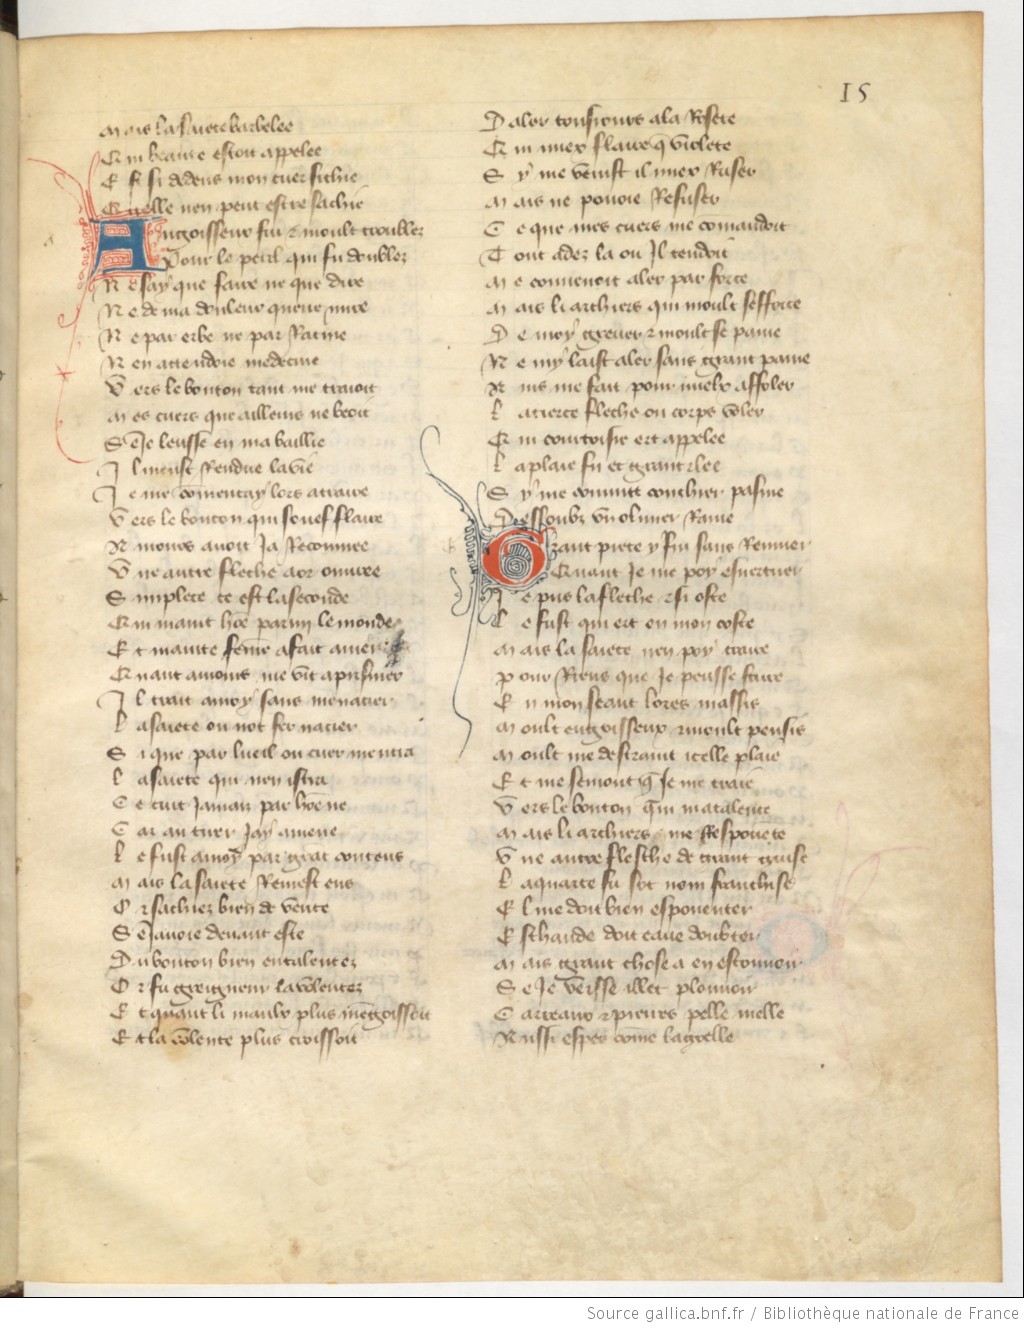 15
Mais la saiete barbelee
Qui beaute estoit appelee
E fu si dedens mon cuer fichie
Quelle nen peut estre sachie
Angoisseux fui & moult troublez
Pour le peril qui fu doublez
Ne say que faire ne que dire
Ne de ma douleur querre mire
Ne par erbe ne par racine
Nen attendoie medecine
Vers le bouton tant me traioit
Mes cuers que ailleurs ne beoit
Se Je leusse en ma baillie
Il meust rendue la vie
Je me comencay lors a traire
Vers le bouton qui souef flaire
Amours avoit Ja recouvree
Une autre fleche a or ouvree
Simplece ce est la seconde
Qui maint hoe parmy le monde
Et mainte feme a fait amer
Quant amours me vit aprismer
Il trait a moy sans menacier
La saiete ou not fer nacier
Si que par lueil ou cuer mentra
La saiete qui nen istra
Ce cuit Jamais par hoe ne
Car au tirer Jay amene
Le fust a moy par grat contens
Mais la saiete remest ens
Or sachiez bien de verite
Se Javoie devant este
Du bouton bien entalentez
Or fu greigneur la volentez
Et quant li maulx plus mengoissoit
Et la volente plus croissoit
Daler tousjours a la rosete
Qui miex flaire que violete
Sy me venist il miex ruser
Mais ne povoie refuser
Ce que mes cuers me comandoit
Tout adez la ou Il tendoit
Me convenoit aler par force
Mais li archiers qui moult sefforce
De moy grever & moult se paine
Ne my laist aler sans grant paine
Ains me fait pour mielx affoler
La tierce fleche ou corps voler
Qui courtoisie ert appelee
La plaie fu et grant & lee
Sy me convint couchier pasme
Dessoubz un olivier rame
Grant piece y fui sans remuer
Quant Je me poy esvertuer
Je pris la fleche & si oste
Le fust qui ert en mon coste
Mais la saiete nen poy traire
Pour riens que Je peusse faire
En mon seant lores massis
Moult engoisseux & moult pensis
Moult me destraint icelle plaie
Et me semont que Je me traie
Vers le bouton qui matalente
Mais li archiers me respovente
Une autre flesche de tirant guise
La quarte fu sot nom franchise
El me doit bien espoventer
Eschaude doit eaue doubter
Mais grant chose a en estouvoir
Se Je veisse illec plouvoir
Carreaux & pierres pelle melle
Aussi espes come la grelle
Source gallica.bnf.fr / Bibliothèque nationale de France